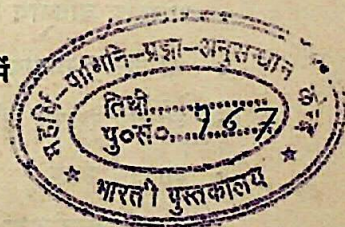 में
महर्षि-पाणिनि-प्रज्ञा-अनुसन्धान
तिथी..................
पु०सं०....767........
भारती पुस्तकालय